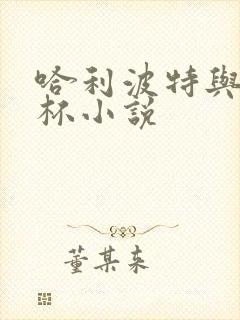 哈利波特與
杯小說
董某来